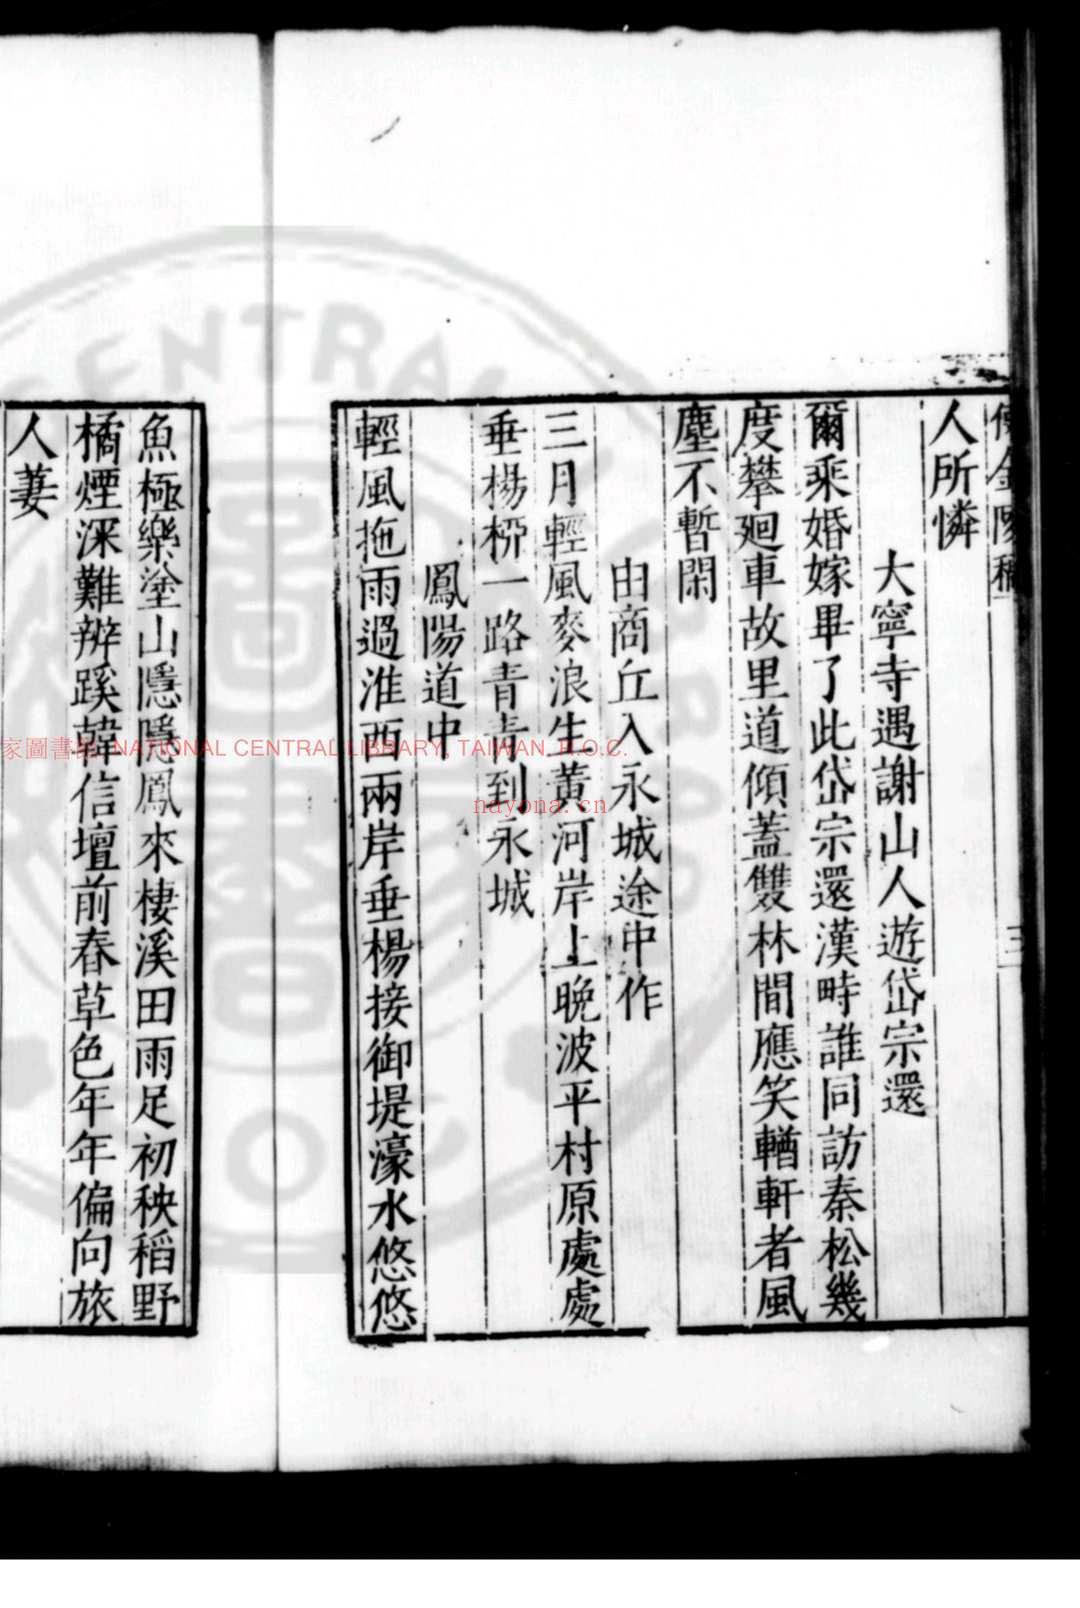 人所憐
大寧寺遇謝山人遊岱宗還
爾乘婚嫁畢了此岱宗還漢畤誰同訪秦松幾
度攀廻車故里道傾蓋雙林間應笑輶軒者風
塵不暫閑
由商丘入永城途中作
三月輕風麥浪生黃河岸上晚波平村原處處
垂楊桺一路青青到永城
鳳陽道中
輕風拖雨過淮西兩岸垂楊接御堤濠水悠悠
魚極樂塗山隱隱鳳來棲溪田雨足初秧稻野
橘煙深難辨蹊韓信壇前春草色年年偏向旅
人萋
三
家圖書館 NATIONAL CENTRAL LIBRARY, TAIWAN, R.O.C.
nayona.cn